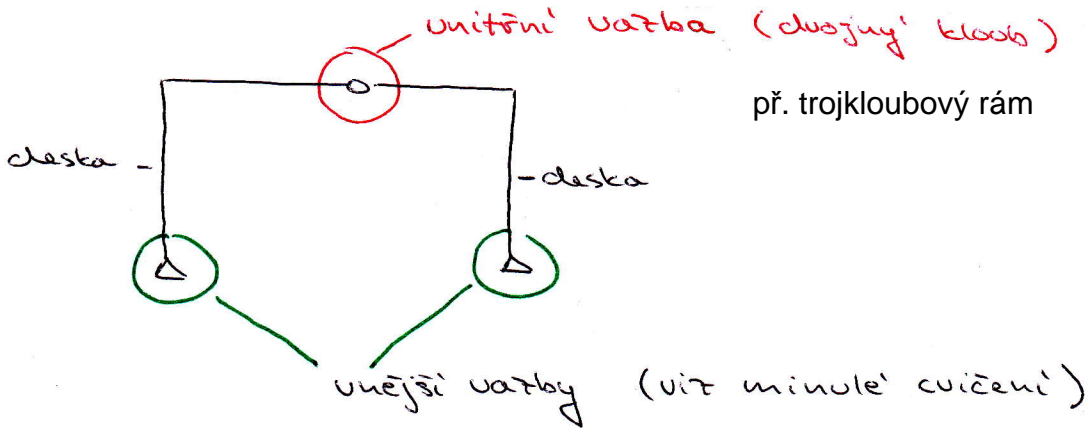 vnitřní vazba (dvojný kloub)
př. trojkloubový rám
deska
deska
vnější vazby (viz minulé cvičení)